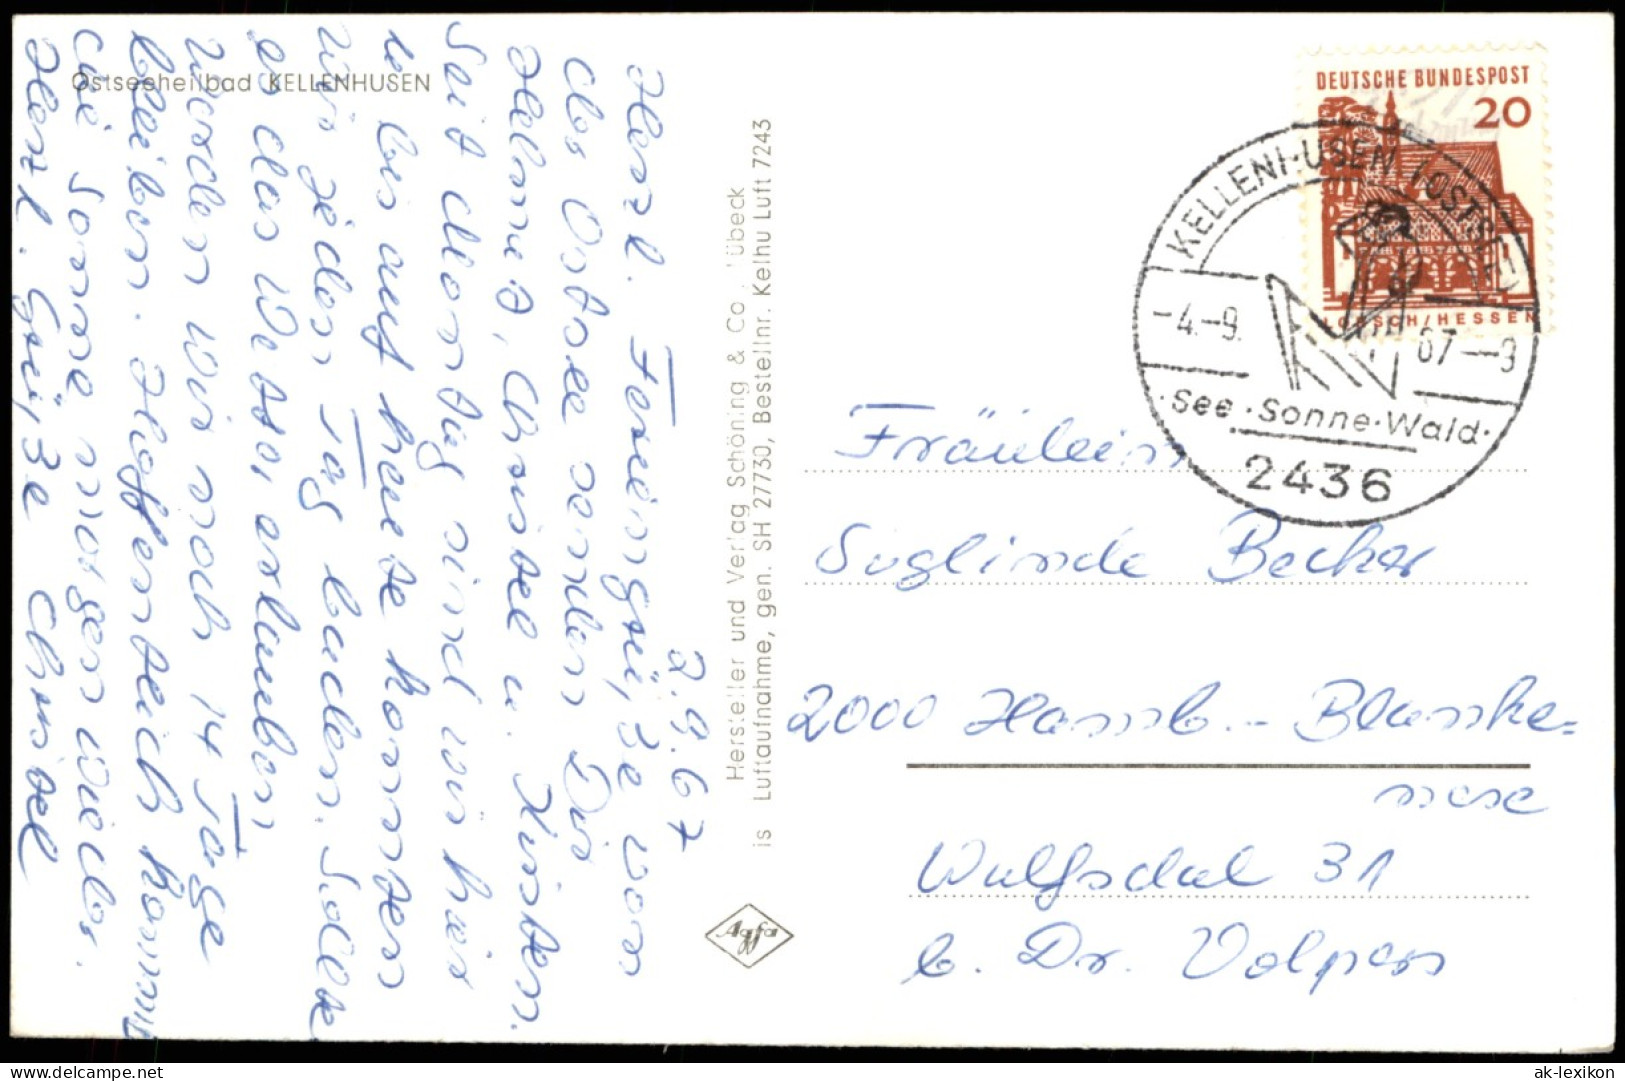 Ostseeheilbad KELLENHUSEN
2.9.67
Herzl. Feriengrüße von
der Ostsee senden Dir
Helmut, Christel u. Kirsten.
Seit Montag sind wir hier
u. bis auf heute konnten
wir jeden Tag baden. Sollte
es das Wetter erlauben,
werden wir noch 14 Tage
bleiben. Hoffentlich kommt
die Sonne morgen wieder.
Herzl. Grüße Christel
Hersteller und Verlag Schöning & Co., Lübeck
is Luftaufnahme, gen. SH 27730, Bestellnr. Kelhu Luft 7243
Agfa
DEUTSCHE BUNDESPOST
20
LORSCH/HESSEN
KELLENHUSEN (OSTSEE)
-4.-9. 67--9
·See·Sonne·Wald·
2436
Fräulein
Sieglinde Becker
2000 Hamb.-Blanke=
nese
Wulfsdal 31
b. Dr. Volpers
© ak-lexikon.de
ak-lexikon